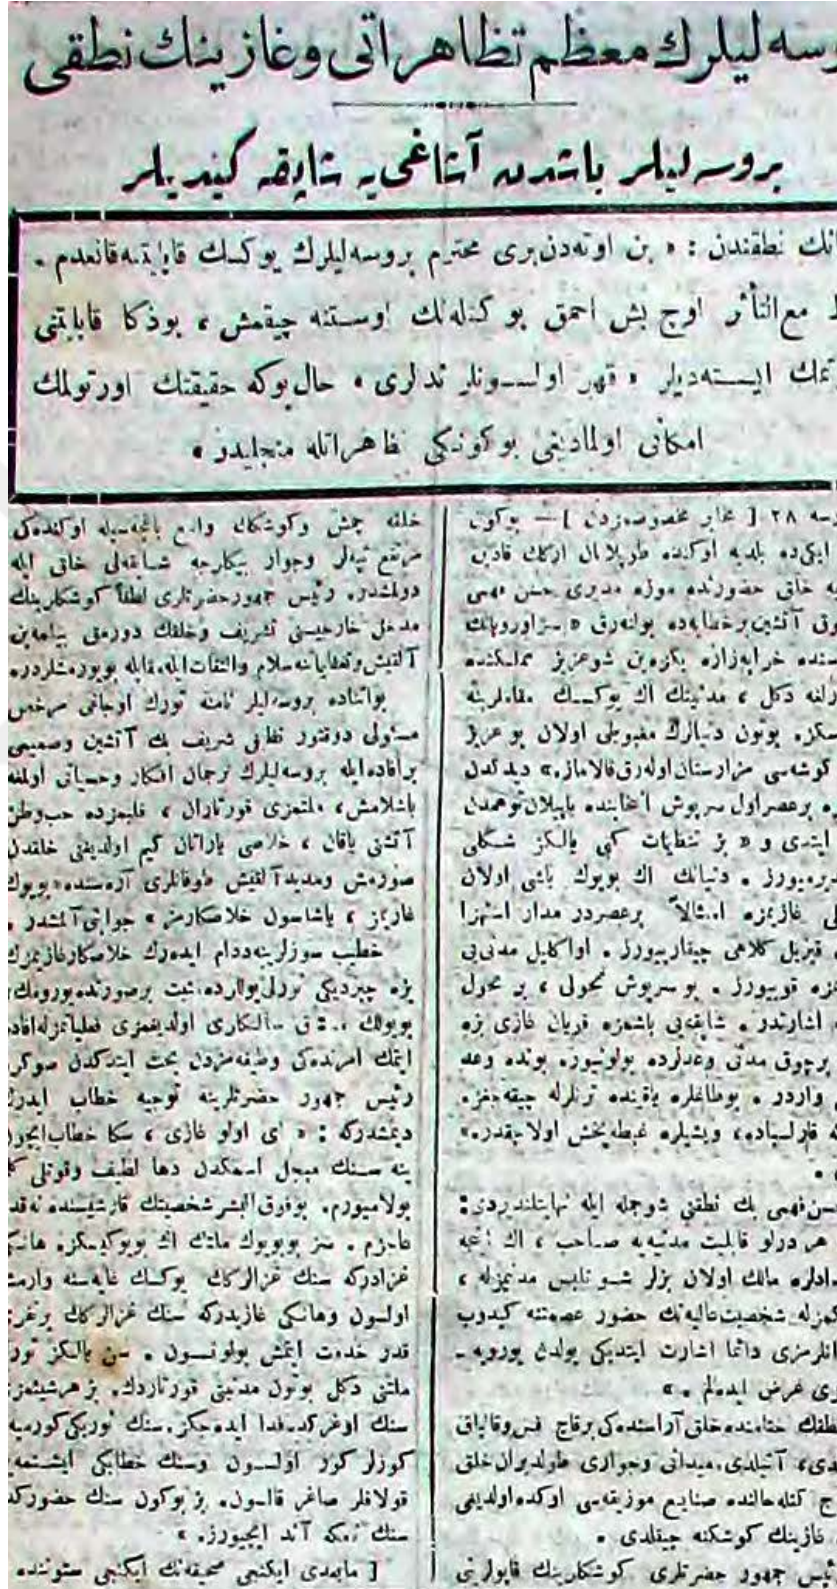 وسه ليلرك معظم تظاهراتی وغازينك نطقی
بروسه ليلر باشدن آشاغی يه شاپقه كيديلر
نطقندن : « بن اوته‌دن بری محترم بروسه‌ليلرك يوكسك قابليتنه قانعدم .
مع التأثر اوچ بش احمق بو كتله‌نك اوستنه چيقمش ، بو ذكا قابليتنی
ايسته‌ديلر « قهر اولسونلر ندالری » حال بوكه حقيقتك اورتولمك
امكانی اولماديغی بوكونكی تظاهراتله منجليدر »
۲۸ [ مخابر مخصوصمزدن ] — بوكون
ايكيده بلديه اوكنده طوپلانان اركك قادين
خلق حضورنده موزه مديری حسن فهمی
آتشين برخطابه‌ده بولنه‌رق « سز اوروپانك
خرابه‌زاره بكزه‌ين شو عزيز مملكتنده
دكل ، مدنيتك اك يوكسك مقاملرينه
بوتون دنيالرك مقبولی اولان بو عزيز
كوشه‌سی مزارستان اوله‌رق قالاماز.» ديدكدن
برعصر اول سرپوش انتخابنده ياپيلان توهمدن
ايتدی و « بز تنظيمات كبی يالكز شكلی
. دنيانك اك بويوك باشی اولان
غازيمزه امتثالاً برعصردر مدار استهزا
قيزيل كلاهی چيقارييورز . او اكليل مدنی‌يی
قويیورز . بو سرپوش تحولی ، بر تحول
اشارتدر . شاپقه‌يی باشمزه قويان غازی بزه
برچوق مدنی وعدلرده بولونيور. بونده وعد
واردر . بو طاغلره ياقينده ترنلرله چيقه‌جغز.
غبطه‌بخش اولاجقدر.»
فهمی بك نطقنی شو جمله ايله نهايتلنديردی :
هر درلو قابليت مدنيه‌يه صاحب ، اك
مالك اولان بزلر شو تلبس مدنيمزله ،
شخصيت عاليه‌نك حضور عصمتنه كيدوب
دائما اشارت ايتديكی يولدن يورويه‌-
عرض ايده‌لم . »
ختامنده خلق آراسنده‌كی برقاچ فس وقالپاق
آتيلدی. ميدانی وجواری طولديران خلق
كتله حالنده صنايع موزيقه‌سی اوكده اولديغی
غازينك كوشكنه چيقلدی .
جمهور حضرتلری كوشكلرينك قاپولرينی
خلقه آچمش وكوشكك واسع باغچه‌سيله اوكنده‌كی
مرتفع تپه‌لر وجوار بيكلرجه شاپقه‌لی خلق ايله
دولمشدر. رئيس جمهور حضرتلری لطفاً كوشكلرينك
مدخل خارجيسنی تشريف وخلقك دورمق بيلمه‌ين
آلقيش وتعظيماتنه سلام والتفات ايله مقابله بويورمشلردر.
بو اثناده بروسه‌ليلر نامنه تورك اوجاغی مرخص
مسئولی دوقتور نظامی شريف بك آتشين وصميمی
بر افاده ايله بروسه‌ليلرك ترجمان افكار وحسياتی اولمغه
باشلامش ، ملتمزی قورتاران ، قلبمزده حب وطن
آتشنی ياقان ، خلاصی ياراتان كيم اولديغنی خلقدن
صورمش ومديد آلقيش طوفانلری آره‌سنده « بويوك
غازيمز ، ياشاسون خلاصكارمز » جوابنی آلمشدر .
خطيب سوزلرينه دوام ايده‌رك خلاصكار غازيمزك
بزه چيزديكی نورلی يوللرده ثبت برصورتده يورومك،
بو يولك عشق سالكاری اولديغمزی فعلياتمزله افاده
ايتمك امرنده‌كی وظيفه‌مزدن بحث ايتدكدن صوكره
رئيس جمهور حضرتلرينه توجيه خطاب ايدرك
ديمشدركه : « ای اولو غازی ، سكا خطاب ايچون
ينه سنك مبجل اسمكدن دها لطيف وقوتلی كلمه
بولاميورم. بو فوق البشر شخصيتك قارشيسنده نه‌قدر
عاجزم . سز بو بويوك ملتك اك بويوكيسكز. هانكی
غزادركه سنك غزالرك‌ك يوكسك غايه‌سنه وارمش
اولسون وهانكی غازيدركه سنك غزالرك‌ك
قدر خدمت ايتمش بولونسون . سن يالكز تورك
ملتنی دكل بوتون مدنيتی قورتاردك. بز هرشيئمزی
سنك اوغركده فدا ايده‌جكز. سنك نوريكی كورميه‌ن
كوزلر كور اولسون وسنك خطابكی ايشتمه‌ين
قولاقلر صاغر قالسون. بز بوكون سنك حضوركده
سنك نامكه آند ايچيورز. »
[ مابعدی ايكنجی صحيفه‌نك ايكنجی ستوننده ]